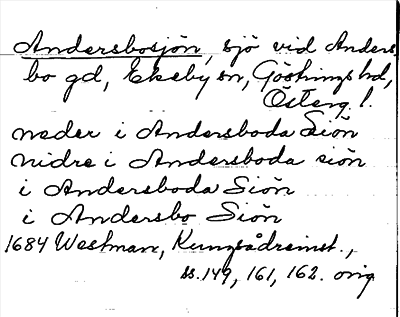 Andersbosjön, sjö vid Anders,
bo gd, Ekeby sn, Göstrings hd,
Österg l.
neder i Andersboda Siön
nidre i Andersboda siön
i Andersboda Siön
i Andersbo Siön
1684 Westman, Kungsådreinst.,
ss. 149, 161, 162. orig